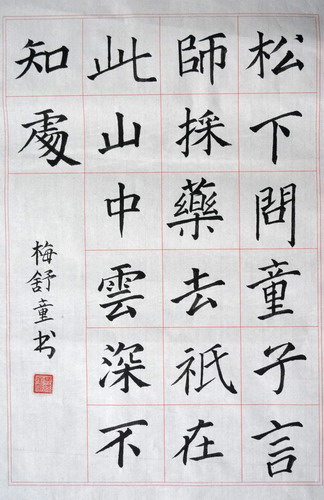 松下問童子言
師採藥去祇在
此山中雲深不
知處
梅舒童书